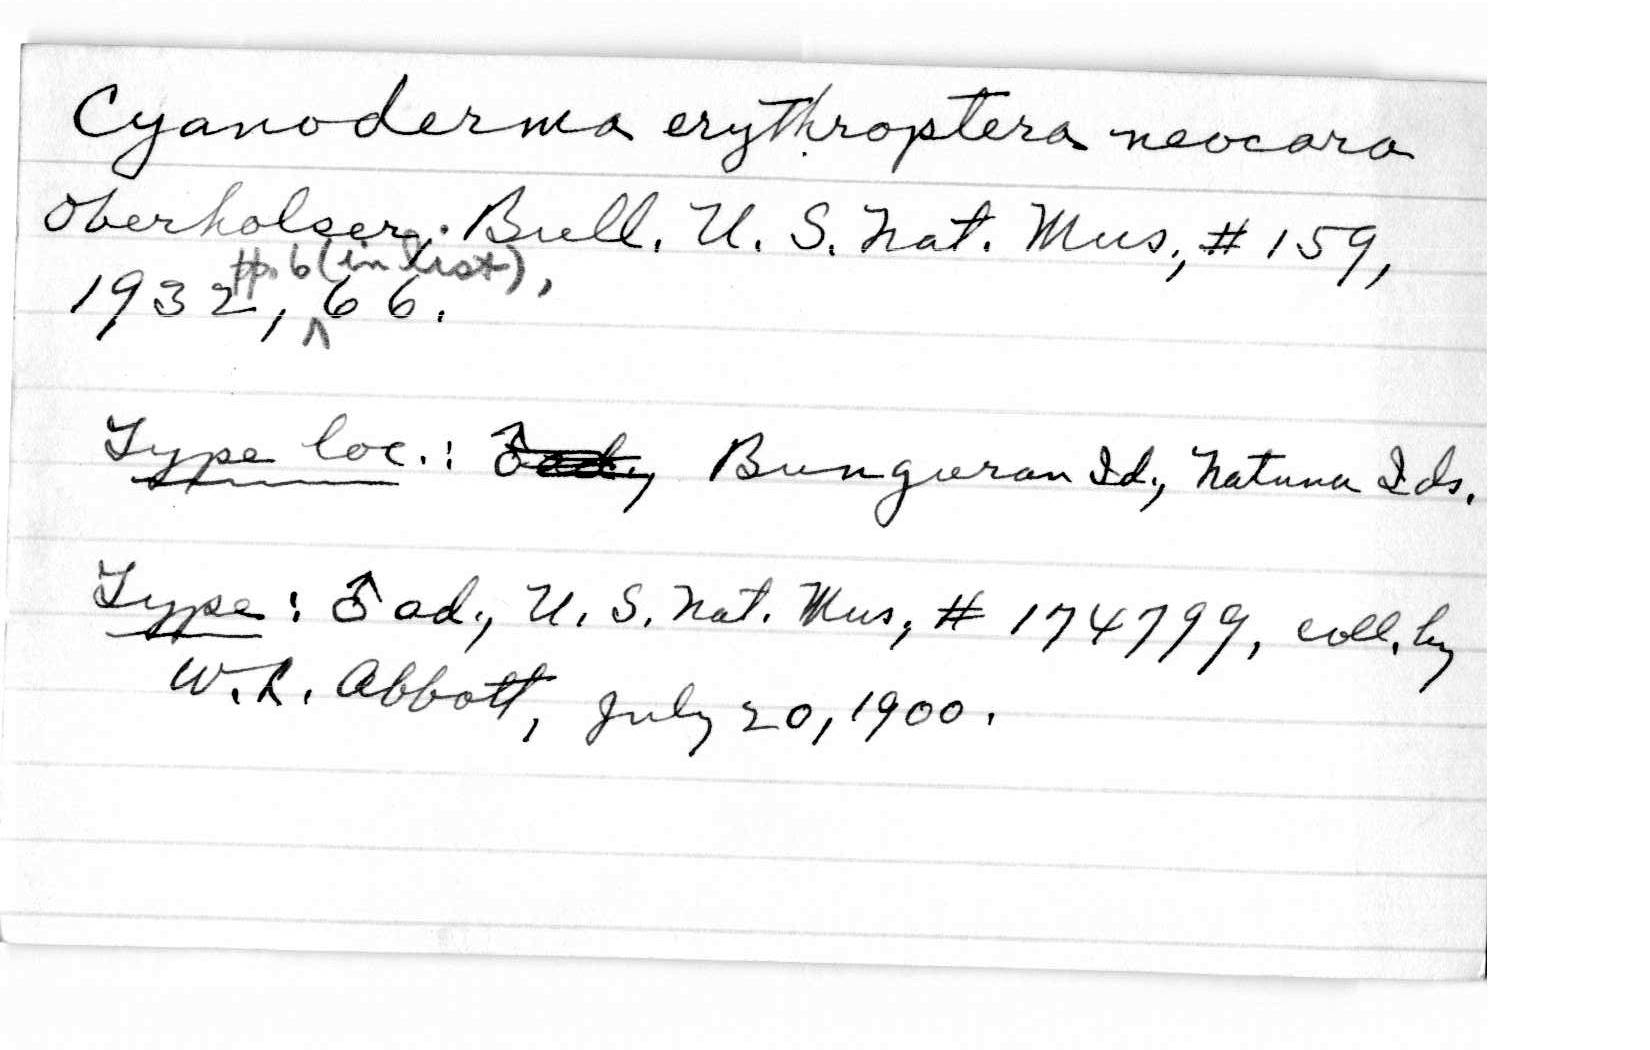 Cyanoderma erythroptera neocara
Oberholser, Bull. U. S. Nat. Mus., # 159,
1932, pp. 6 (in list), 66.
Type loc.: ♂ ad., Bunguran Id., Natuna Ids.
Type: ♂ ad., U. S. Nat. Mus, # 174799, coll. by
W. L. Abbott, July 20, 1900.